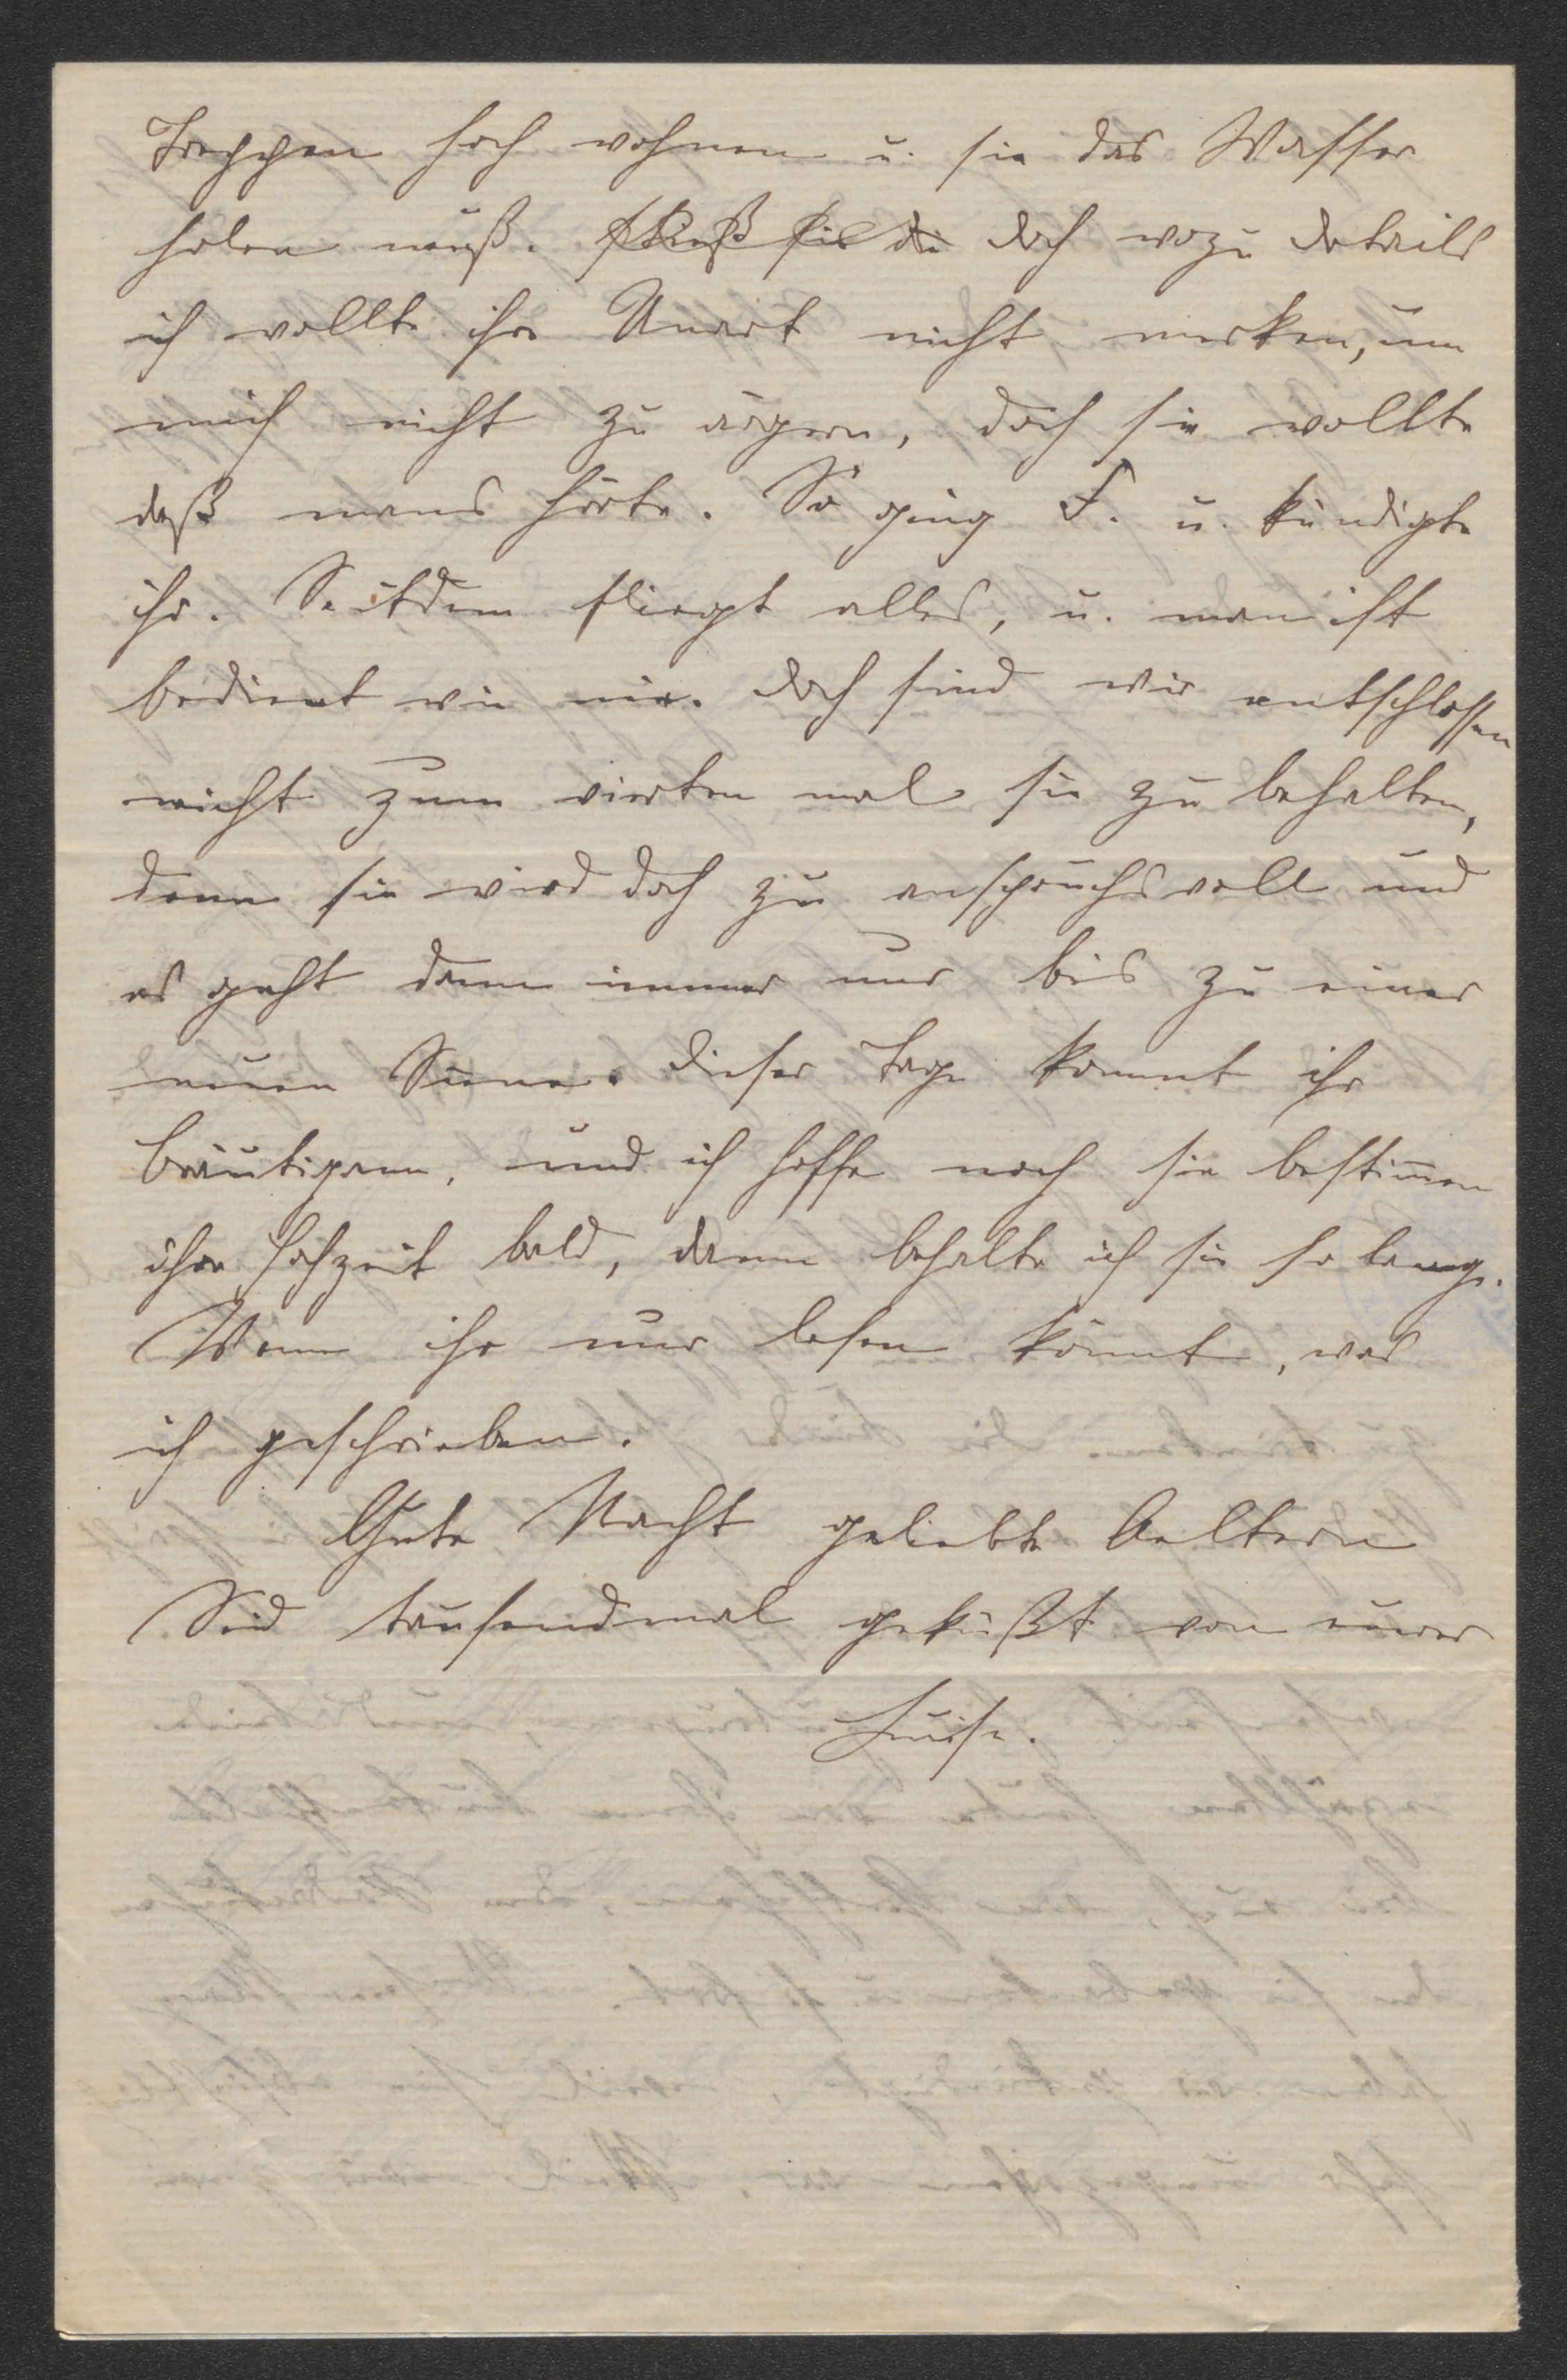 Treppen hoch wohnen u. sie das Wasser
holen muß. doch wozu details
ich wollte ihre Unart nicht merken, um
mich nicht zu ärgern, doch sie wollte
daß mans hörte. So ging F. u. kündigte
ihr. Seitdem fliegt alles, u. man ist
bedient wie nie. doch sind wir entschlossen
nicht zum vierten mal sie zu behalten,
denn sie wird doch zu anspruchsvoll und
es geht dann immer nur bis zu einer
neuen Scene. dieser Tage kommt ihr
bräutigam, und ich hoffe noch sie bestimen
ihre Hochzeit bald, dann behalte ich sie so lange.
Wenn ihr nur lesen könnt, was
ich geschrieben.
Gute Nacht geliebte Aeltern
Seid tausendmal geküßt von eurer
Luise.